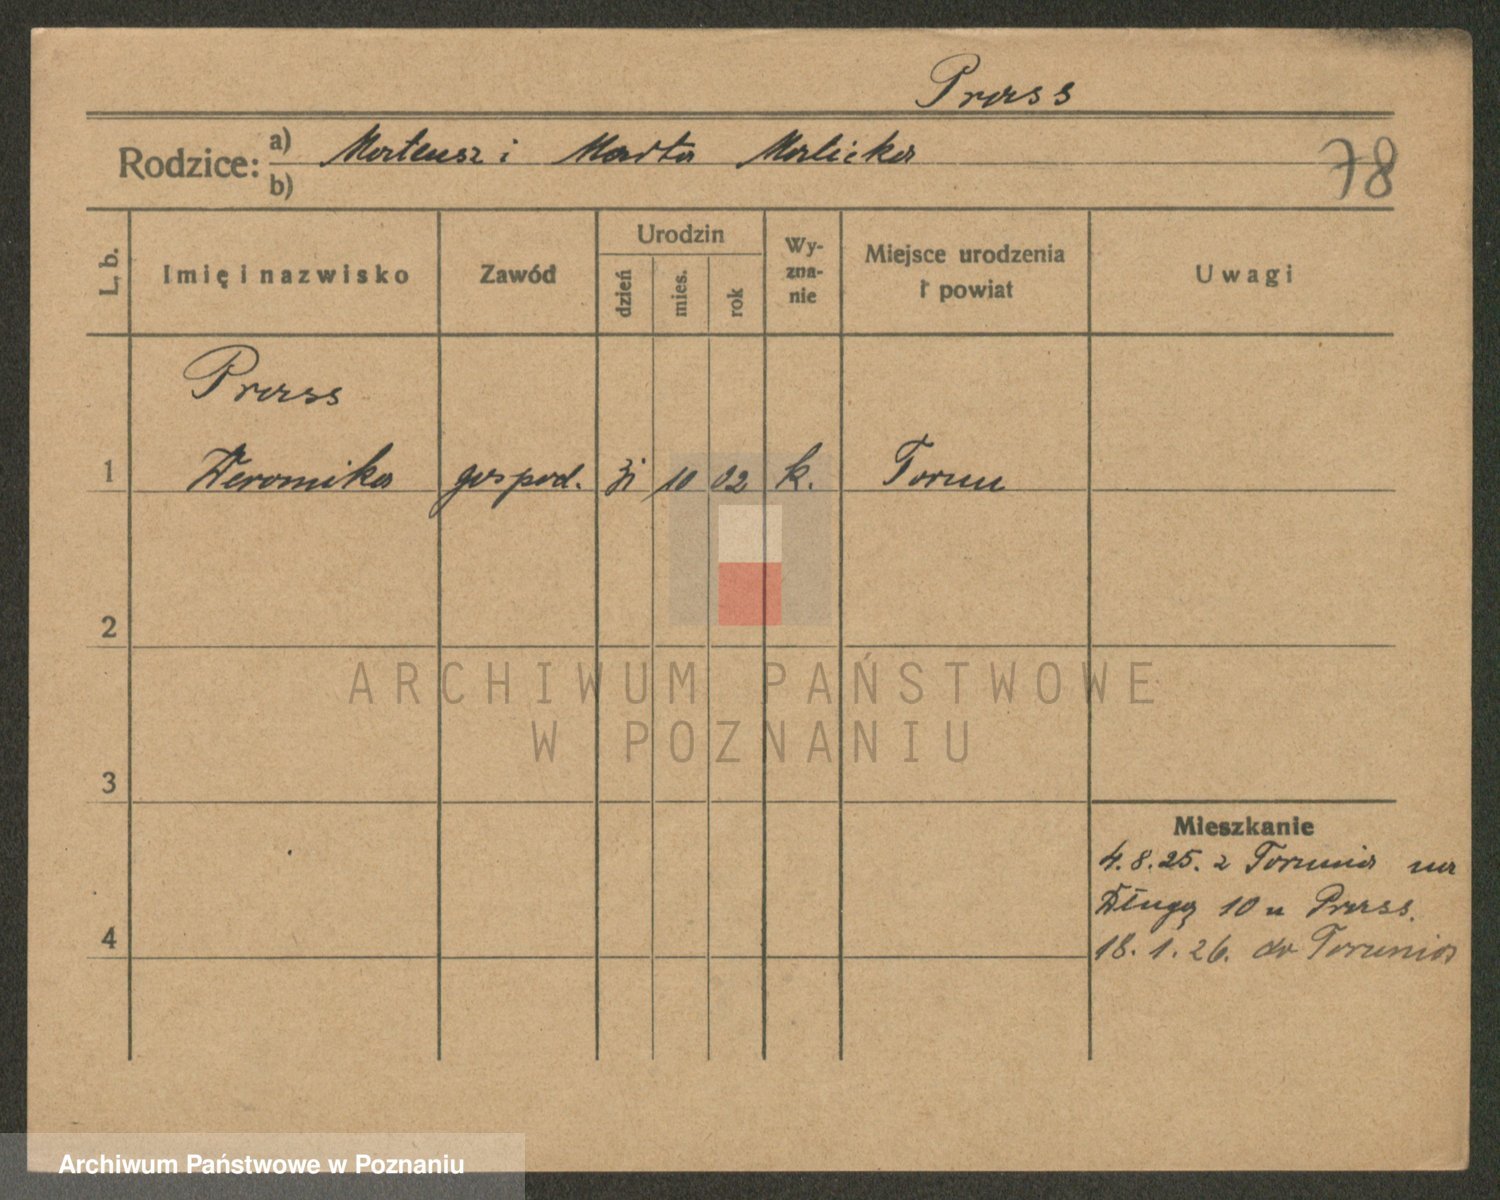 Prass
Rodzice: a) Mateusz i Marta Malicka
b)
78
L. b.
Imię i nazwisko
Zawód
Urodzin
dzień
mies.
rok
Wy-
zna-
nie
Miejsce urodzenia
i powiat
Uwagi
Prass
1 Weronika gospod. 31 10 02 k. Torun
2
3
4
Mieszkanie
4.8.25. z Torunia na
Długą 10 u Prass.
18.1.26. do Torunia
ARCHIWUM PAŃSTWOWE
W POZNANIU
Archiwum Państwowe w Poznaniu